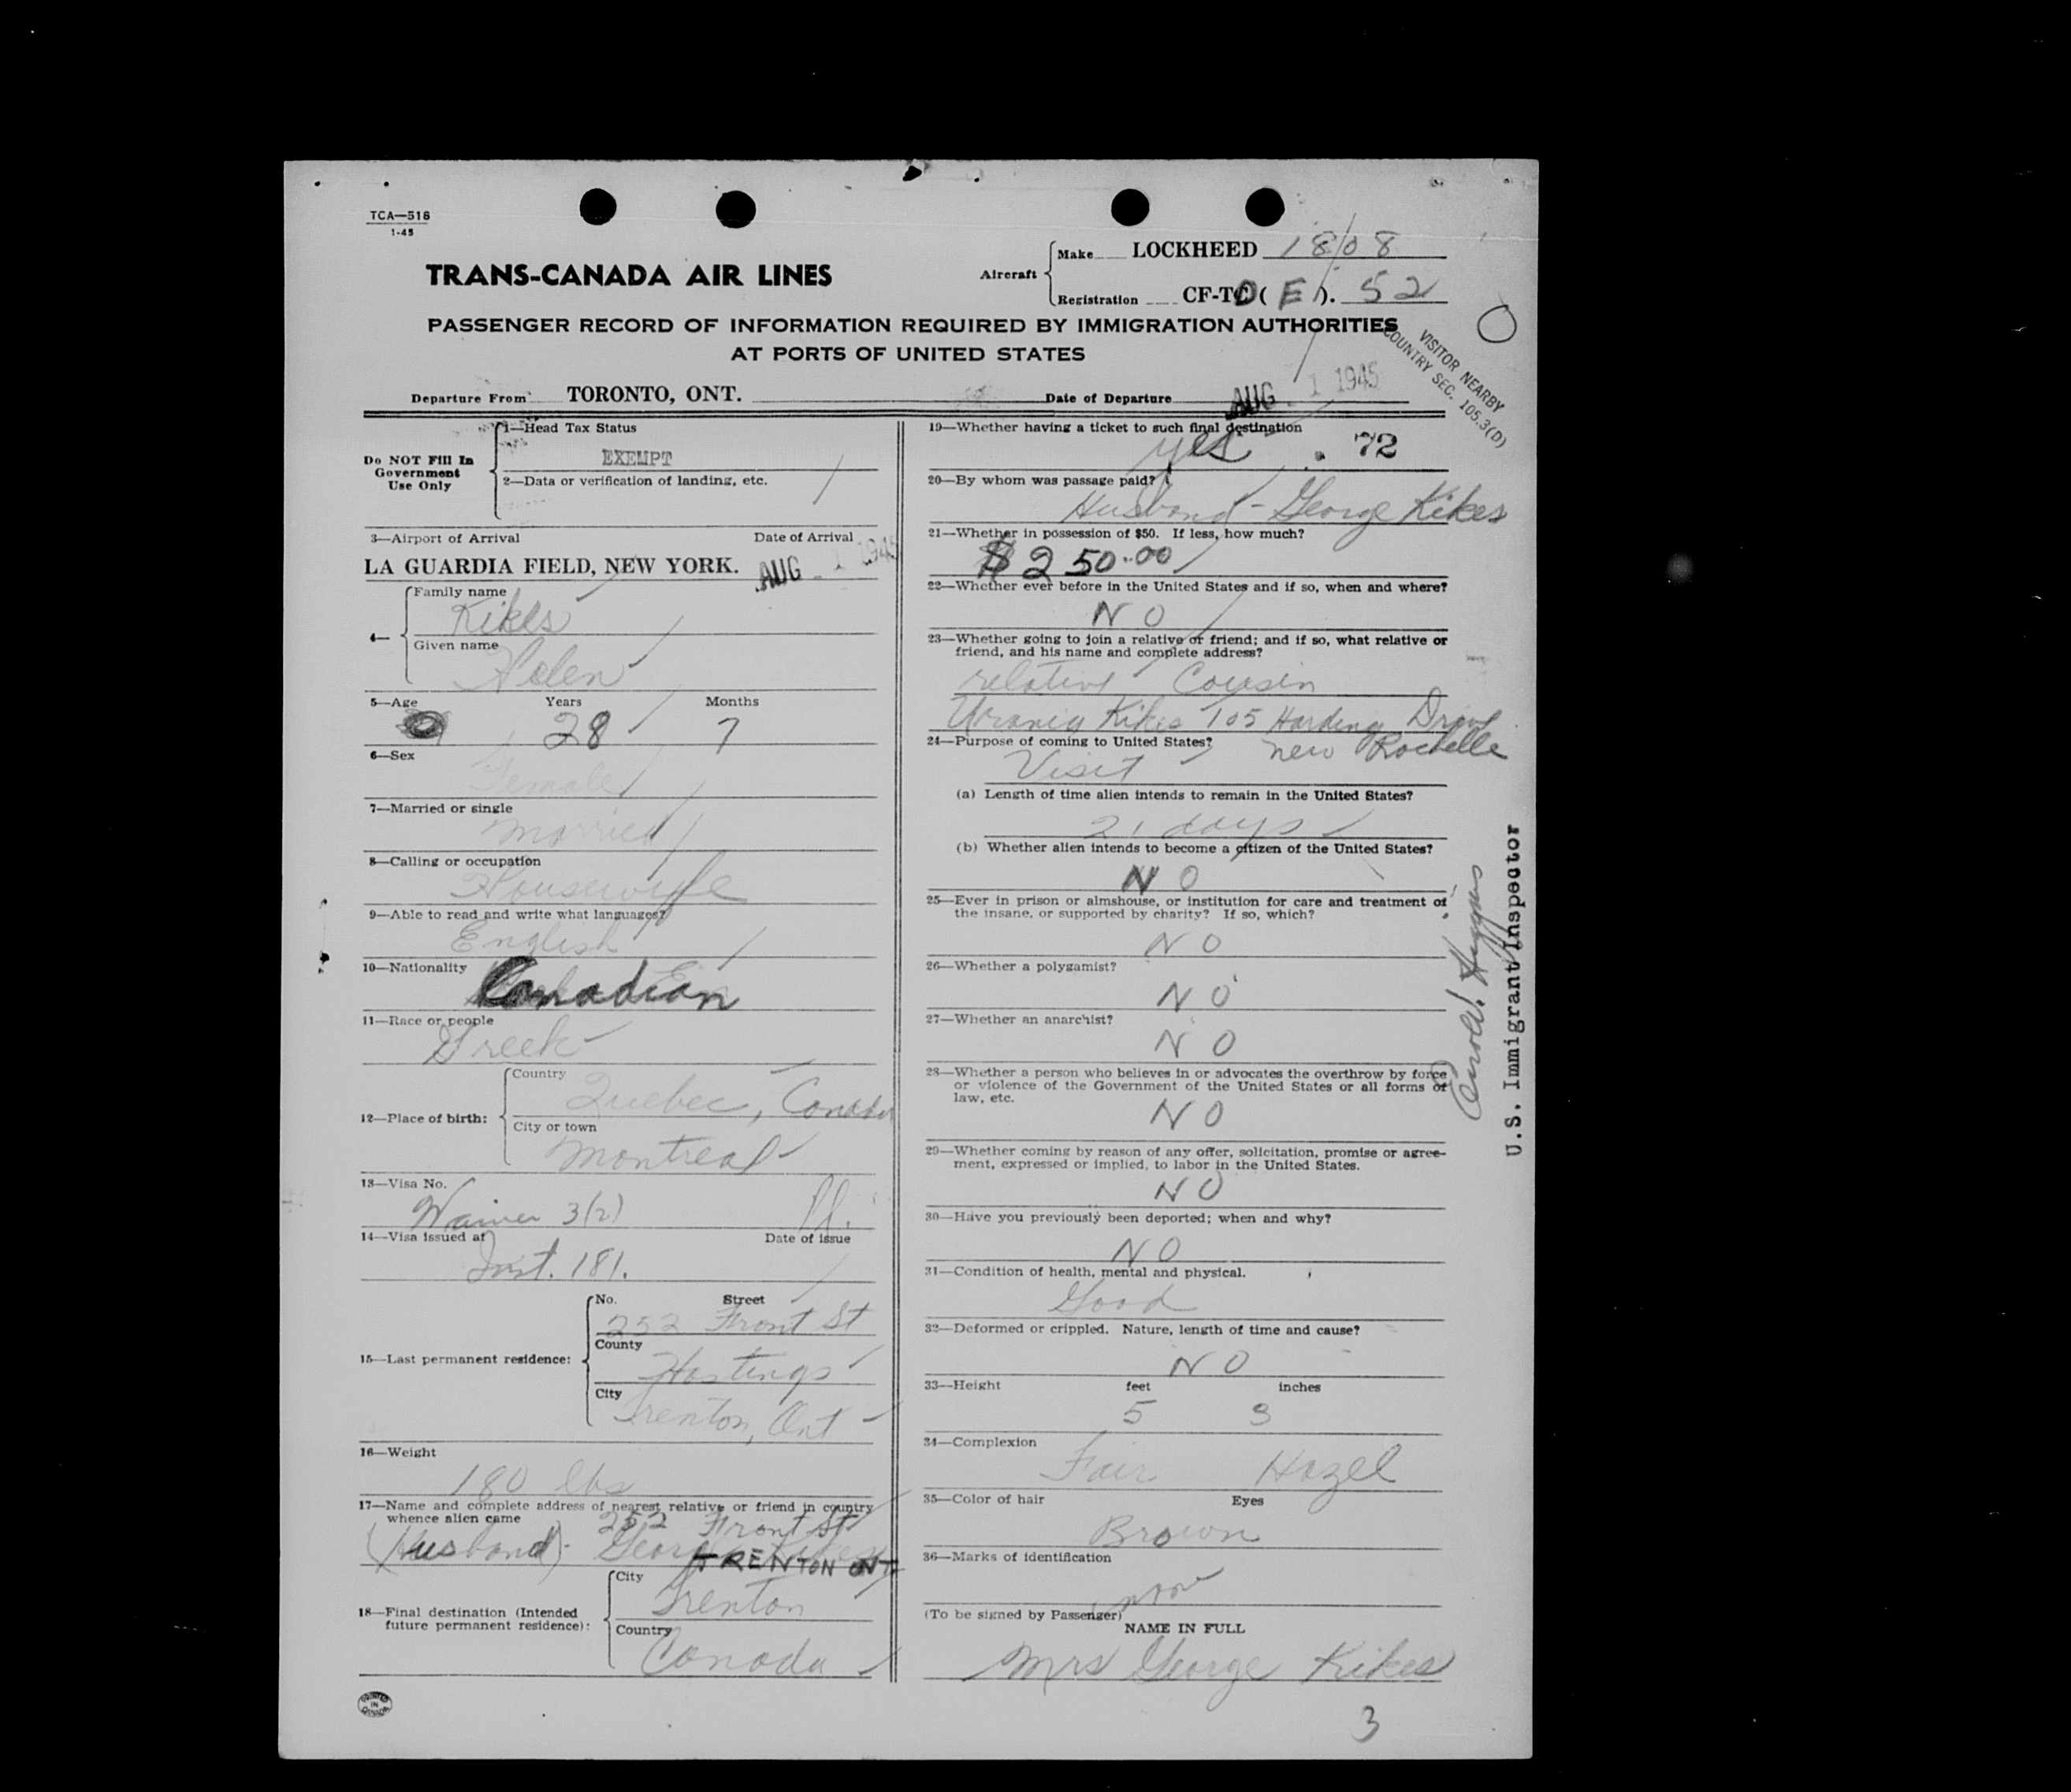 TCA—518
1-45
TRANS-CANADA AIR LINES
Aircraft
Make LOCKHEED 1808
Registration CF-TC ( E ). 52
PASSENGER RECORD OF INFORMATION REQUIRED BY IMMIGRATION AUTHORITIES
AT PORTS OF UNITED STATES
VISITOR NEARBY
COUNTRY SEC. 105.3(D)
Departure From TORONTO, ONT. Date of Departure AUG - 1 1945
Do NOT Fill In
Government
Use Only
1—Head Tax Status
EXEMPT
2—Data or verification of landing, etc.
3—Airport of Arrival Date of Arrival
LA GUARDIA FIELD, NEW YORK. AUG - 1 1945
4—
Family name
Kikes
Given name
Helen
5—Age Years Months
28 7
6—Sex
Female
7—Married or single
married
8—Calling or occupation
Housewife
9—Able to read and write what languages?
English
10—Nationality
Canadian
11—Race or people
Greek
12—Place of birth:
Country
Quebec, Canada
City or town
Montreal
13—Visa No.
Waiver 3(2)
14—Visa issued at Date of issue
Inst. 181.
15—Last permanent residence:
No. Street
252 Front St
County
Hastings
City
Trenton, Ont
16—Weight
180 lbs
17—Name and complete address of nearest relative or friend in country
whence alien came 252 Front St
(Husband)- George Kikes
TRENTON ONT.
18—Final destination (Intended
future permanent residence):
City
Trenton
Country
Canada
PRINTED
IN
CANADA
19—Whether having a ticket to such final destination
yes 72
20—By whom was passage paid?
Husband - George Kikes
21—Whether in possession of $50. If less, how much?
$250.00
22—Whether ever before in the United States and if so, when and where?
NO
23—Whether going to join a relative or friend; and if so, what relative or
friend, and his name and complete address?
relative Cousin
Urania Kikes 105 Harding Drive
New Rochelle
24—Purpose of coming to United States?
Visit
(a) Length of time alien intends to remain in the United States?
21 days
(b) Whether alien intends to become a citizen of the United States?
NO
25—Ever in prison or almshouse, or institution for care and treatment of
the insane, or supported by charity? If so, which?
NO
26—Whether a polygamist?
NO
27—Whether an anarchist?
NO
28—Whether a person who believes in or advocates the overthrow by force
or violence of the Government of the United States or all forms of
law, etc.
NO
29—Whether coming by reason of any offer, solicitation, promise or agree-
ment, expressed or implied, to labor in the United States.
NO
30—Have you previously been deported; when and why?
NO
31—Condition of health, mental and physical.
Good
32—Deformed or crippled. Nature, length of time and cause?
NO
33—Height feet inches
5 3
34—Complexion
Fair Hazel
35—Color of hair Eyes
Brown
36—Marks of identification
(To be signed by Passenger)
NAME IN FULL
Mrs George Kikes
3
U.S. Immigrant Inspector